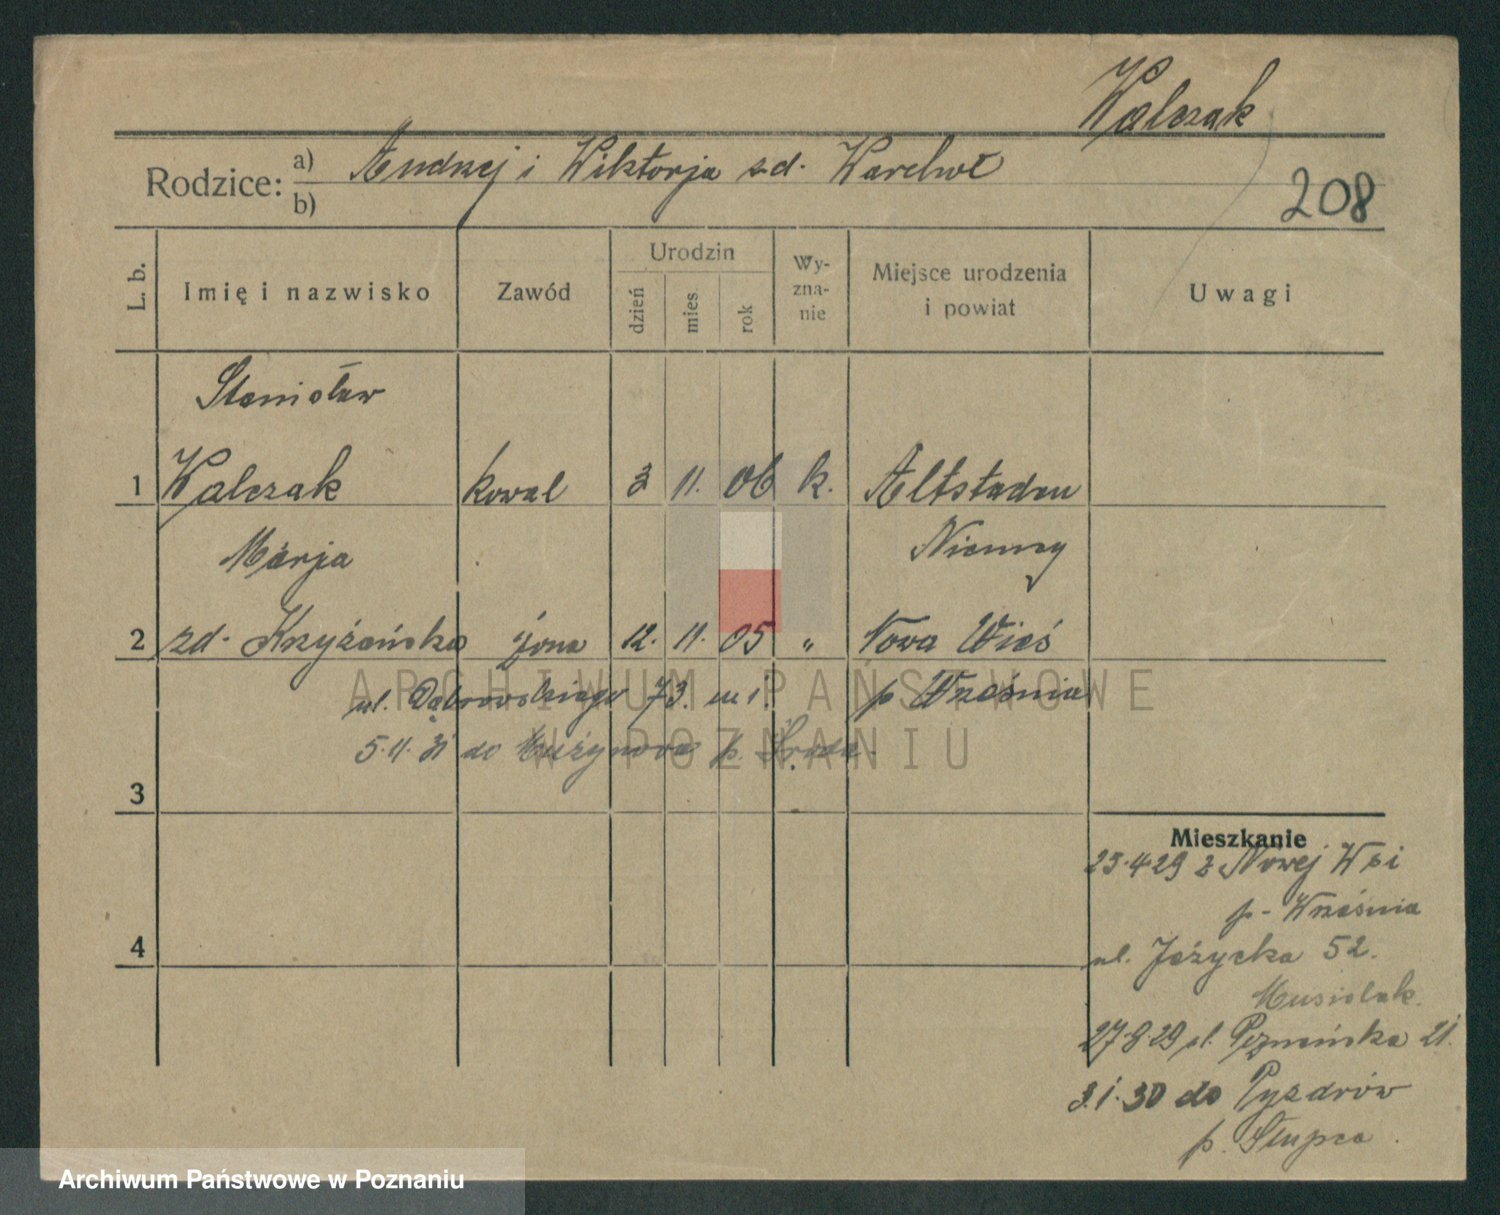 Walczak
Rodzice: a) Andrzej i Wiktorja zd.
b)
208
L. b. Imię i nazwisko Zawód Urodzin dzień mies. rok Wyznanie Miejsce urodzenia i powiat Uwagi
Stanisław
1 Walczak kowal 3 11. 06 k. Altstaden
Marja Niemcy
2 zd. Krzyżańska żona 12. 11. 05 " Nowa Wieś
ul. Dąbrowskiego 73. m 1. p. Września
5.11.31 do p. Środa.
3
Mieszkanie
25.4.29 z Nowej Wsi
p. Września
4
ul. Jeżycka 52.
Musielak.
27.8.29 ul. Poznańska 21.
3.1.30 do Pyzdrów
p. Słupca.
ARCHIWUM PAŃSTWOWE
W POZNANIU
Archiwum Państwowe w Poznaniu